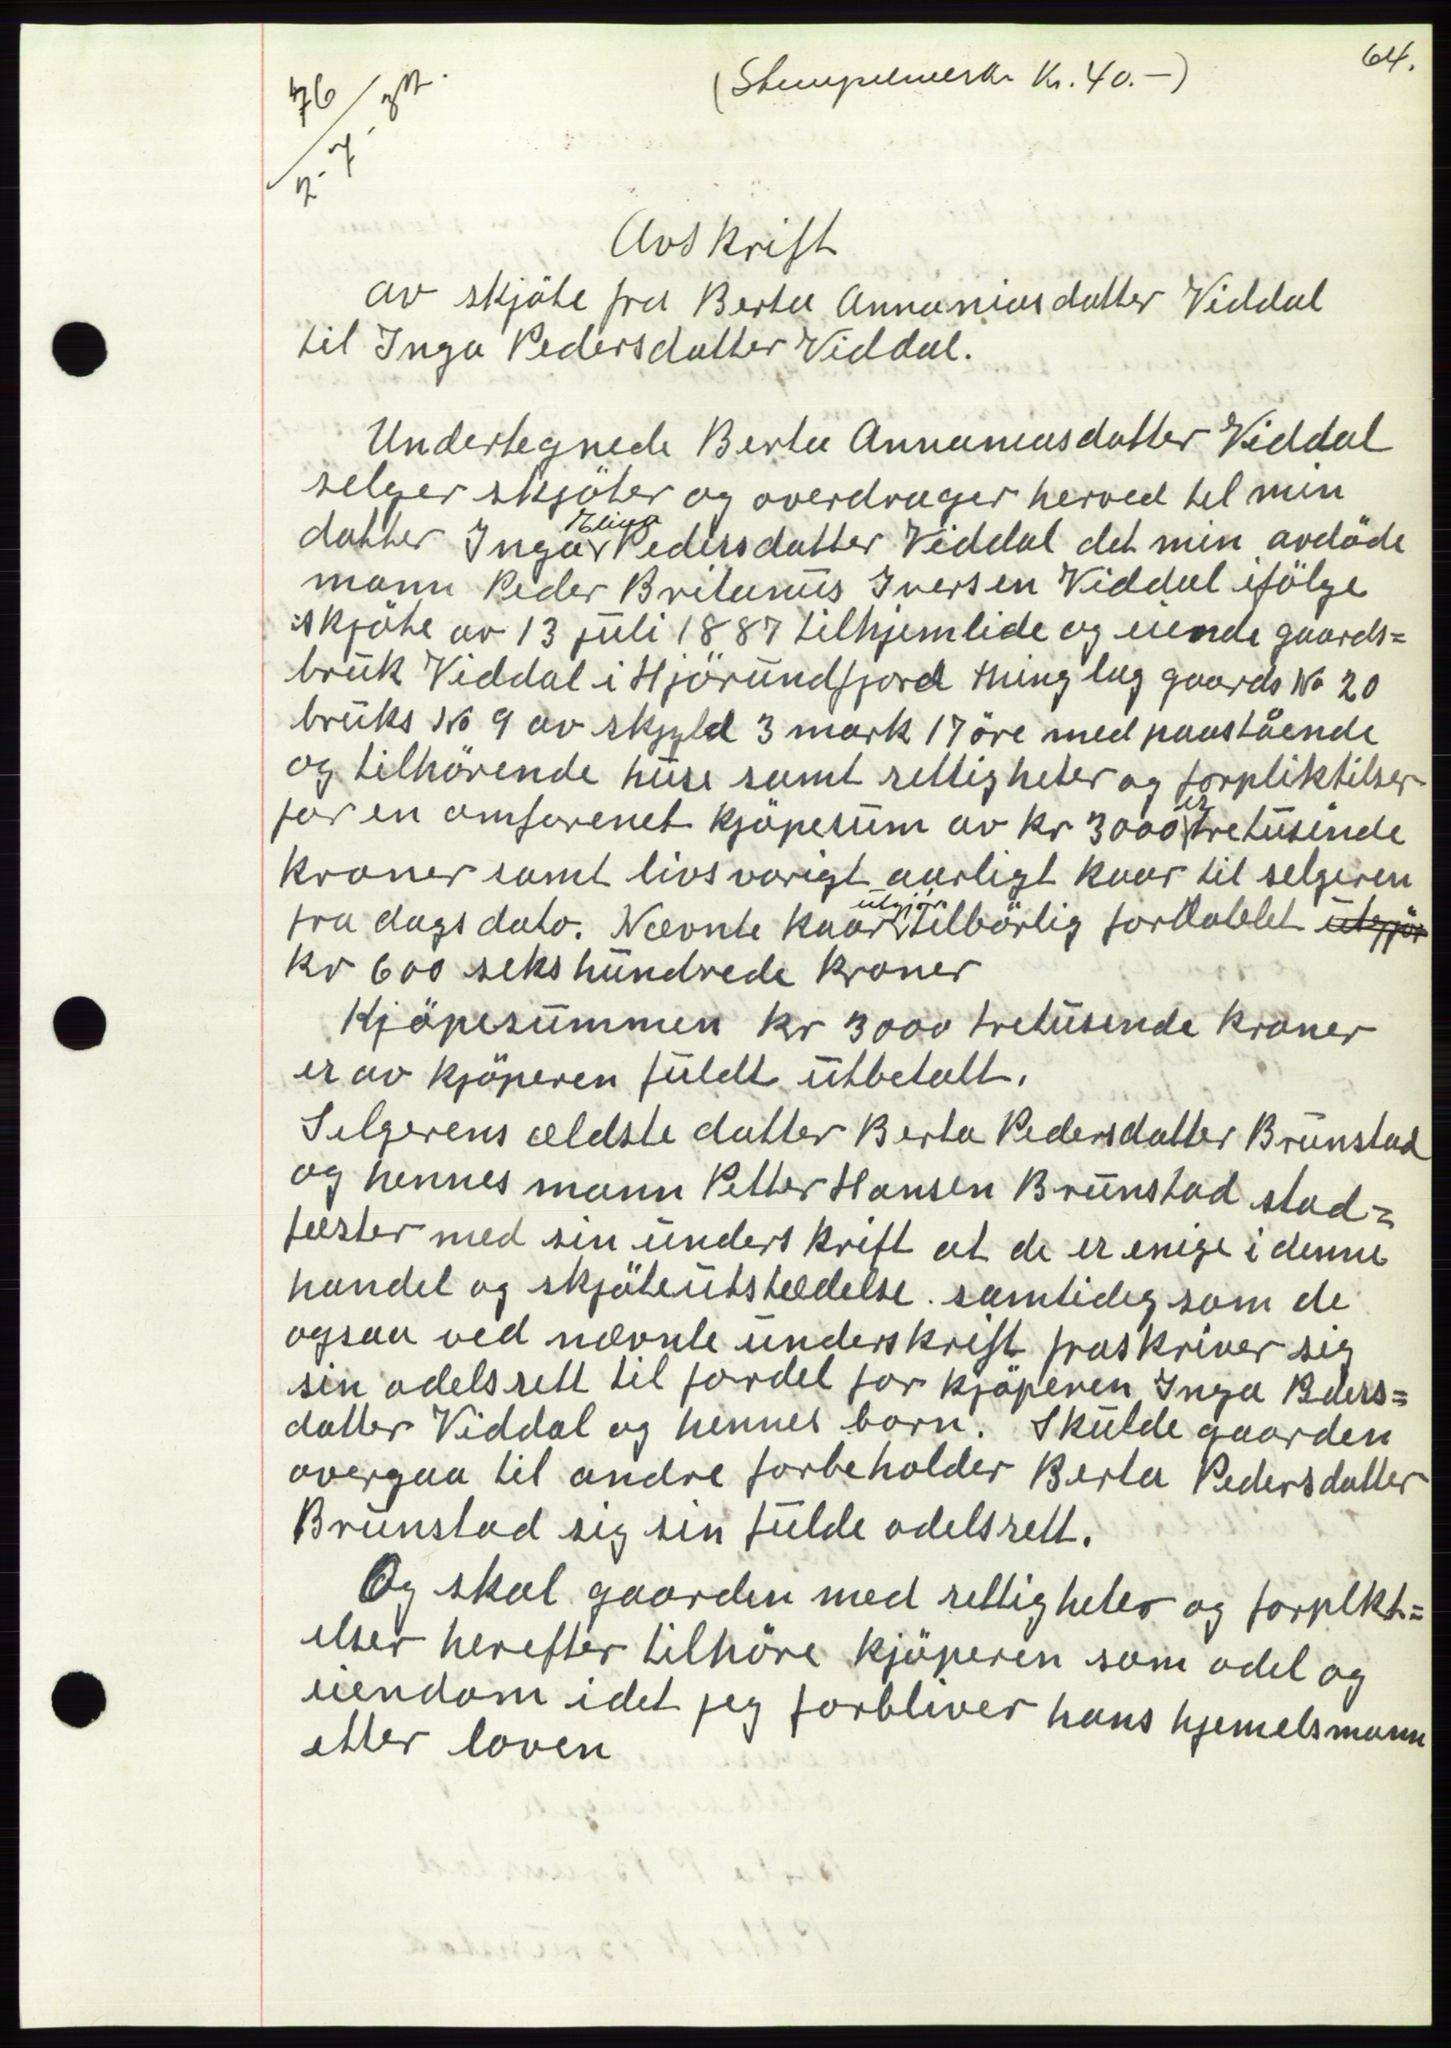 64.
(Stempelmerk Kr. 40.-)
76
2-7-32.
Avskrift
av skjöte fra Berta Annaniasdatter Viddal
til Inga Pedersdatter Viddal.
Undertegnede Berta Annaniasdatter Viddal
selger skjöter og overdrager herved til min
datter Inga Elina Pedersdatter Viddal det min avdöde
mann Peder Britanus Iversen Viddal ifölge
skjöte av 13 juli 1887 tilhjemlide og eiende gaards=
bruk Viddal i Hjörundfjord thinglag gaards No 20
bruks No 9 av skyld 3 mark 17 öre med paastående
og tilhörende huse samt rettigheter og forpliktilser
for en omforenet kjöpesum av kr 3000 er tretusinde
kroner samt livsvarigt aarligt kaar til selgeren
fra dags dato. Nævnte kaar utgjör tilbörlig fordoblet utgjör
kr 600 sekshundrede kroner
Kjöpesummen kr 3000 tretusende kroner
er av kjöperen fuldt utbetalt.
Selgerens ældste datter Berta Pedersdatter Brunstad
og hennes mann Petter Hansen Brunstad stad=
fæster med sin underskrift at de er enige i denne
handel og skjöteutstædelse. samtideg som de
ogsaa ved nævnte underskrift fraskriver sig
sin odelsrett til fordel for kjöperen Inga Peders=
datter Viddal og hennes born. Skulde gaarden
overgaa til andre forbeholder Berta Pedersdatter
Brunstad sig sin fulde odelsrett.
Og skal gaarden med rettigheter og forplkt=
elser herefter tilhöre kjöperen som odel og
eiendom idet jeg forbliver hans hjemelsmann
etter loven